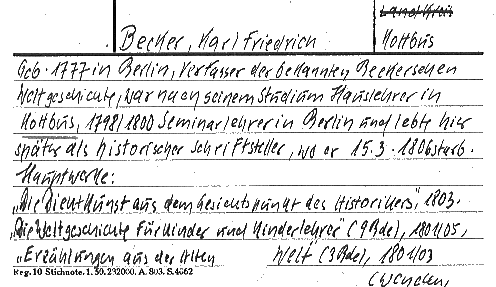 Landkreis
Becker, Karl Friedrich Kottbus
Geb. 1777 in Berlin, Verfasser der bekannten Beckerschen
Weltgeschichte, war nach seinem Studium Hauslehrer in
Kottbus, 1798/1800 Seminarlehrer in Berlin und lebte hier
später als historischer Schriftsteller, wo er 15.3.1806 starb.
Hauptwerke:
„Die Dichtkunst aus dem Gesichtspunkt des Historikers", 1803.
„Die Weltgeschichte für Kinder und Kinderlehrer" (9 Bde), 1801/05,
„Erzählungen aus der Alten Welt" (3 Bde), 1801/03
Reg. 10 Stichnote. 1. 30. 232000. A. 803. S. 4662
(wenden)